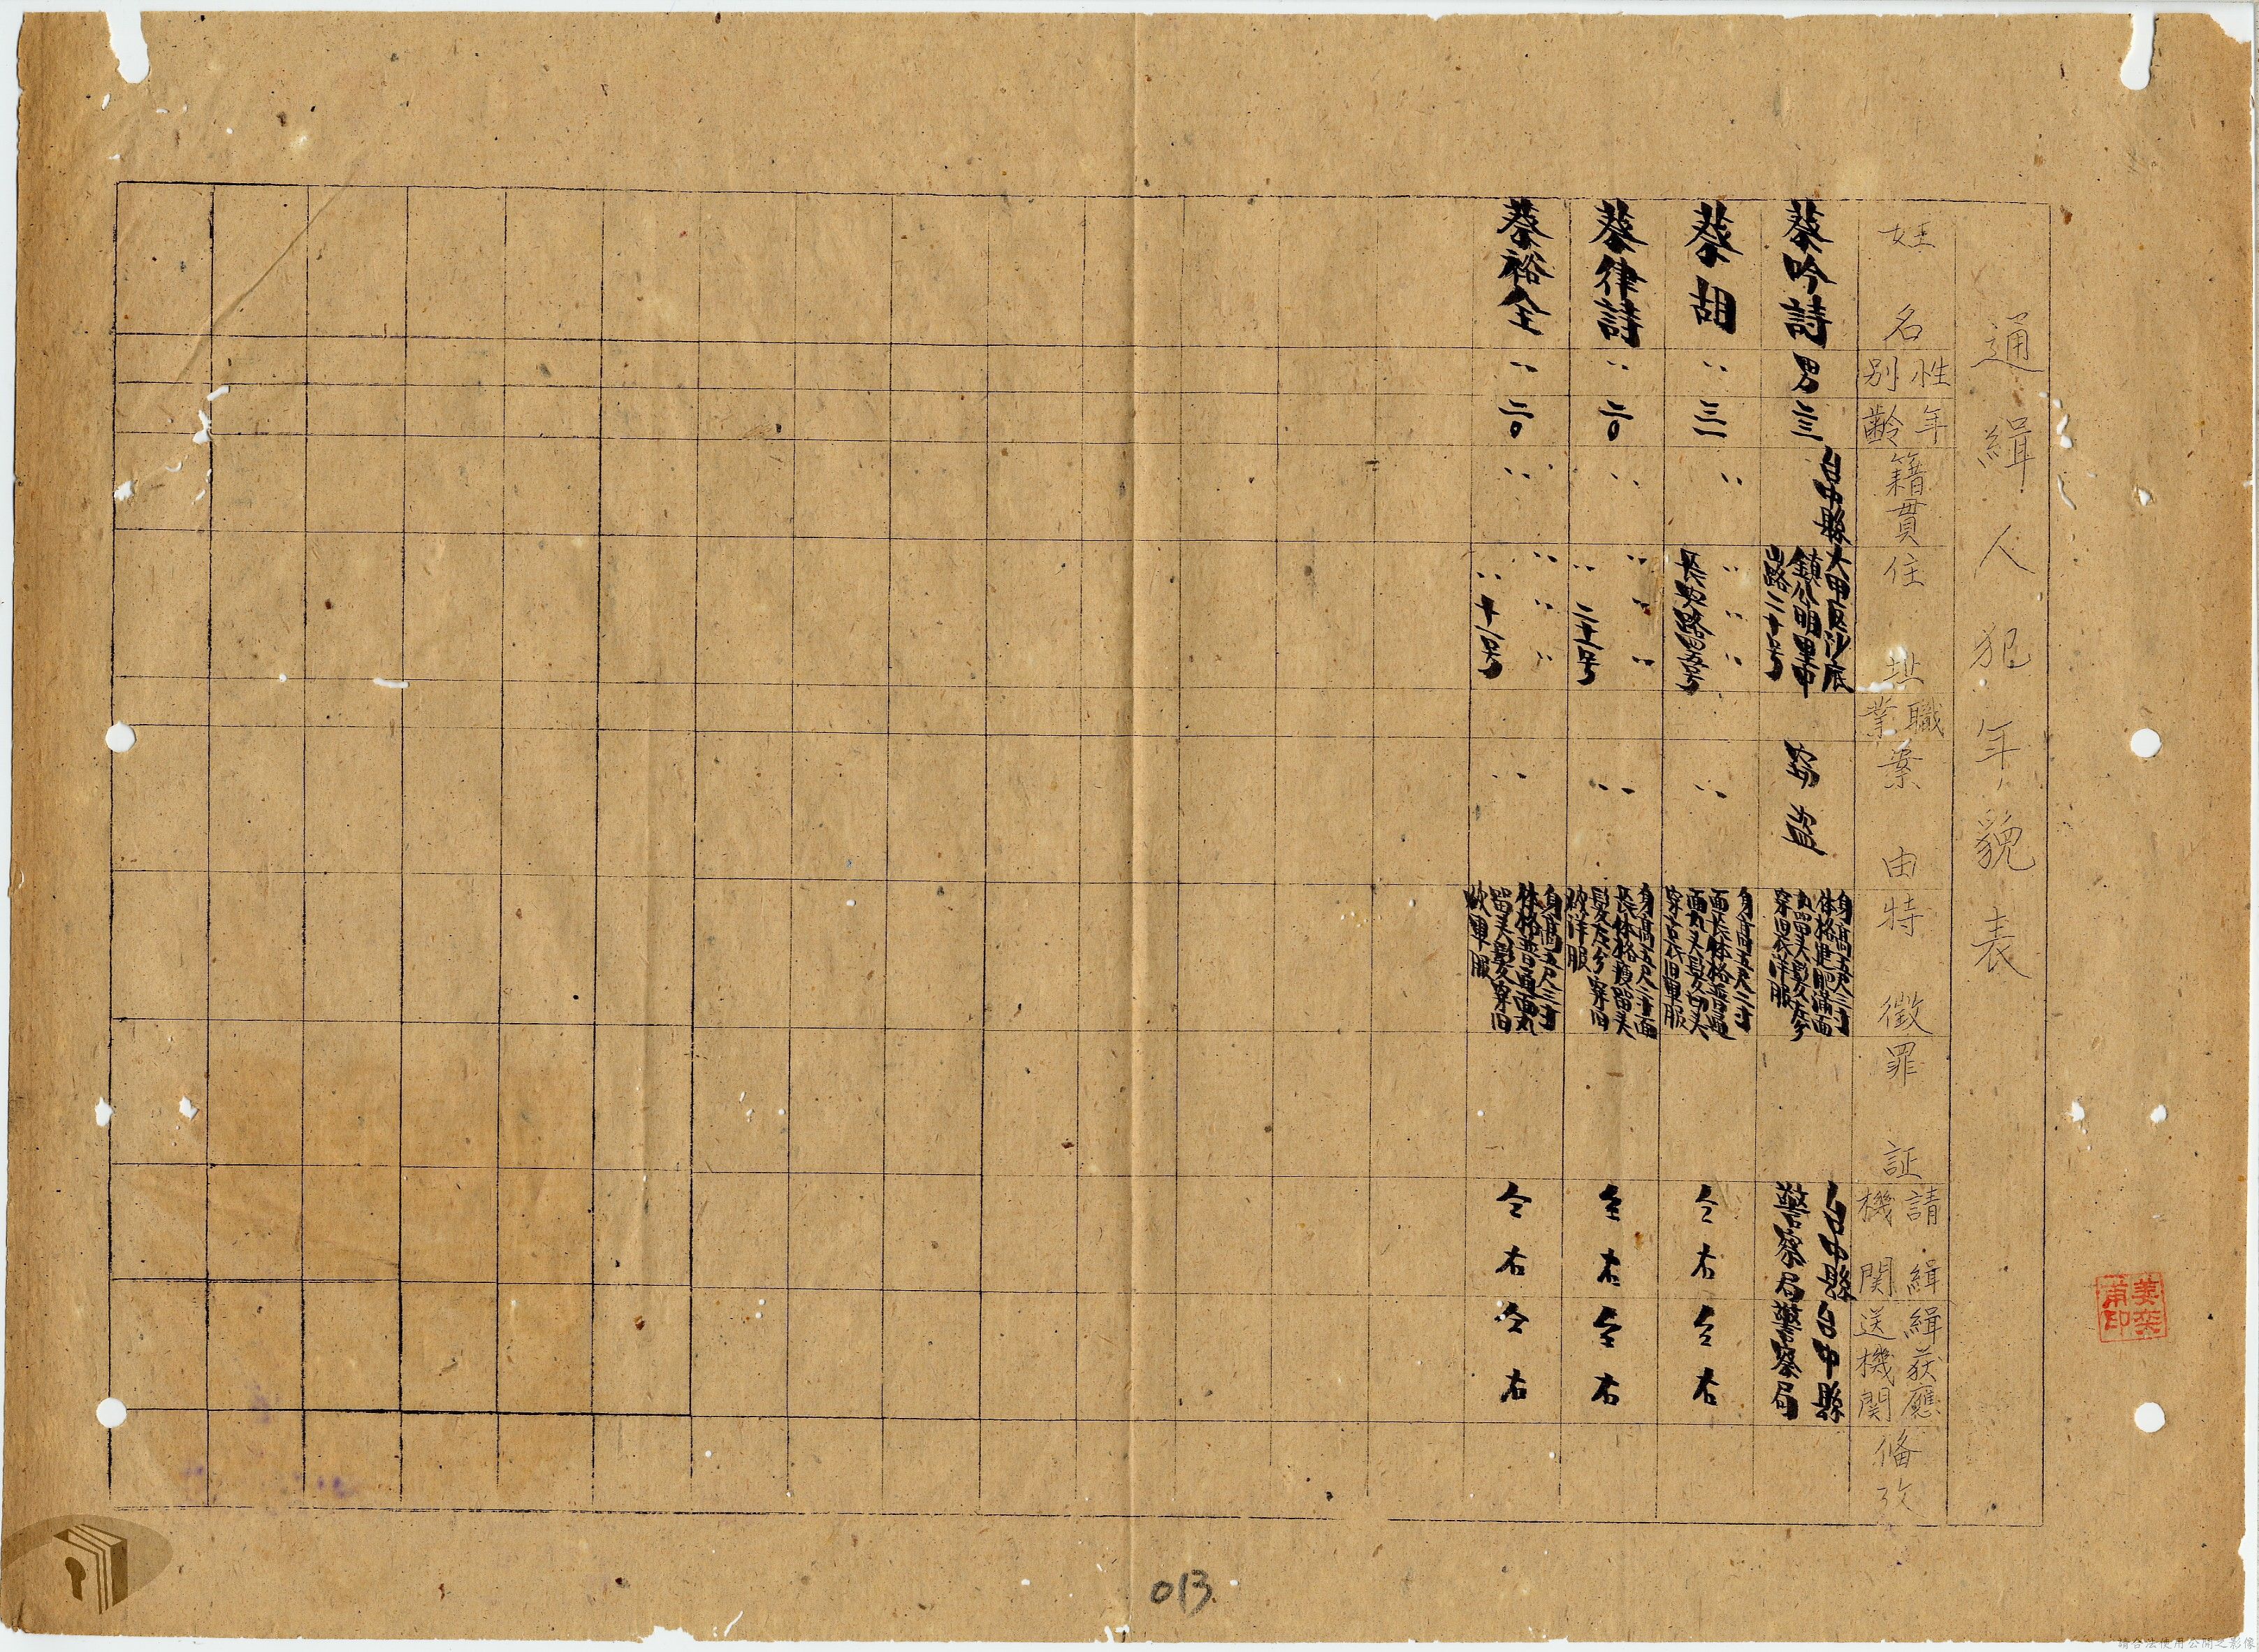 通緝人犯年貌表
姓名
性別
年齡
籍貫
住址
職業
案由
特徵
罪証
請緝機関
緝获應送機関
俻攷
蔡吟詩
男
三三
台中縣
大甲区沙底
鎮公明里中
山路二十号
窃盗
身高五尺三寸
体格肥満面
丸留头髪左分
穿旧衣洋服
台中縣
警察局
台中縣
警察局
蔡胡
〃
三一
〃
〃〃〃
長安路四五号
〃
身高五尺二寸
面长体格普通
面丸头髪切头
穿古衣旧軍服
仝右
仝右
蔡律詩
〃
二〇
〃
〃〃〃
〃二十一号
〃
身高五尺三寸面
长体格瘦留头
髪左分穿旧
欵洋服
仝右
仝右
蔡裕全
〃
二〇
〃
〃〃〃
〃十一号
〃
身高五尺三寸
体格普通面丸
留头髪穿旧
欵軍服
仝右
仝右
013
請合法使用公開之影像